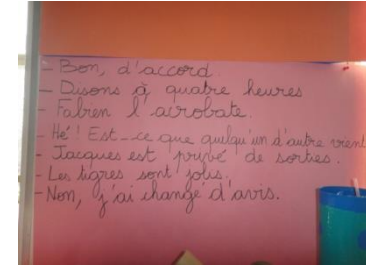 - Bon, d'accord.
- Disons à quatre heures
- Fabren l'acrobate.
- Hé! Est-ce que quelqu'un d'autre vient
- Jacques est privé de sorties.
- Les tigres sont jolis.
- Non, j'ai changé d'avis.